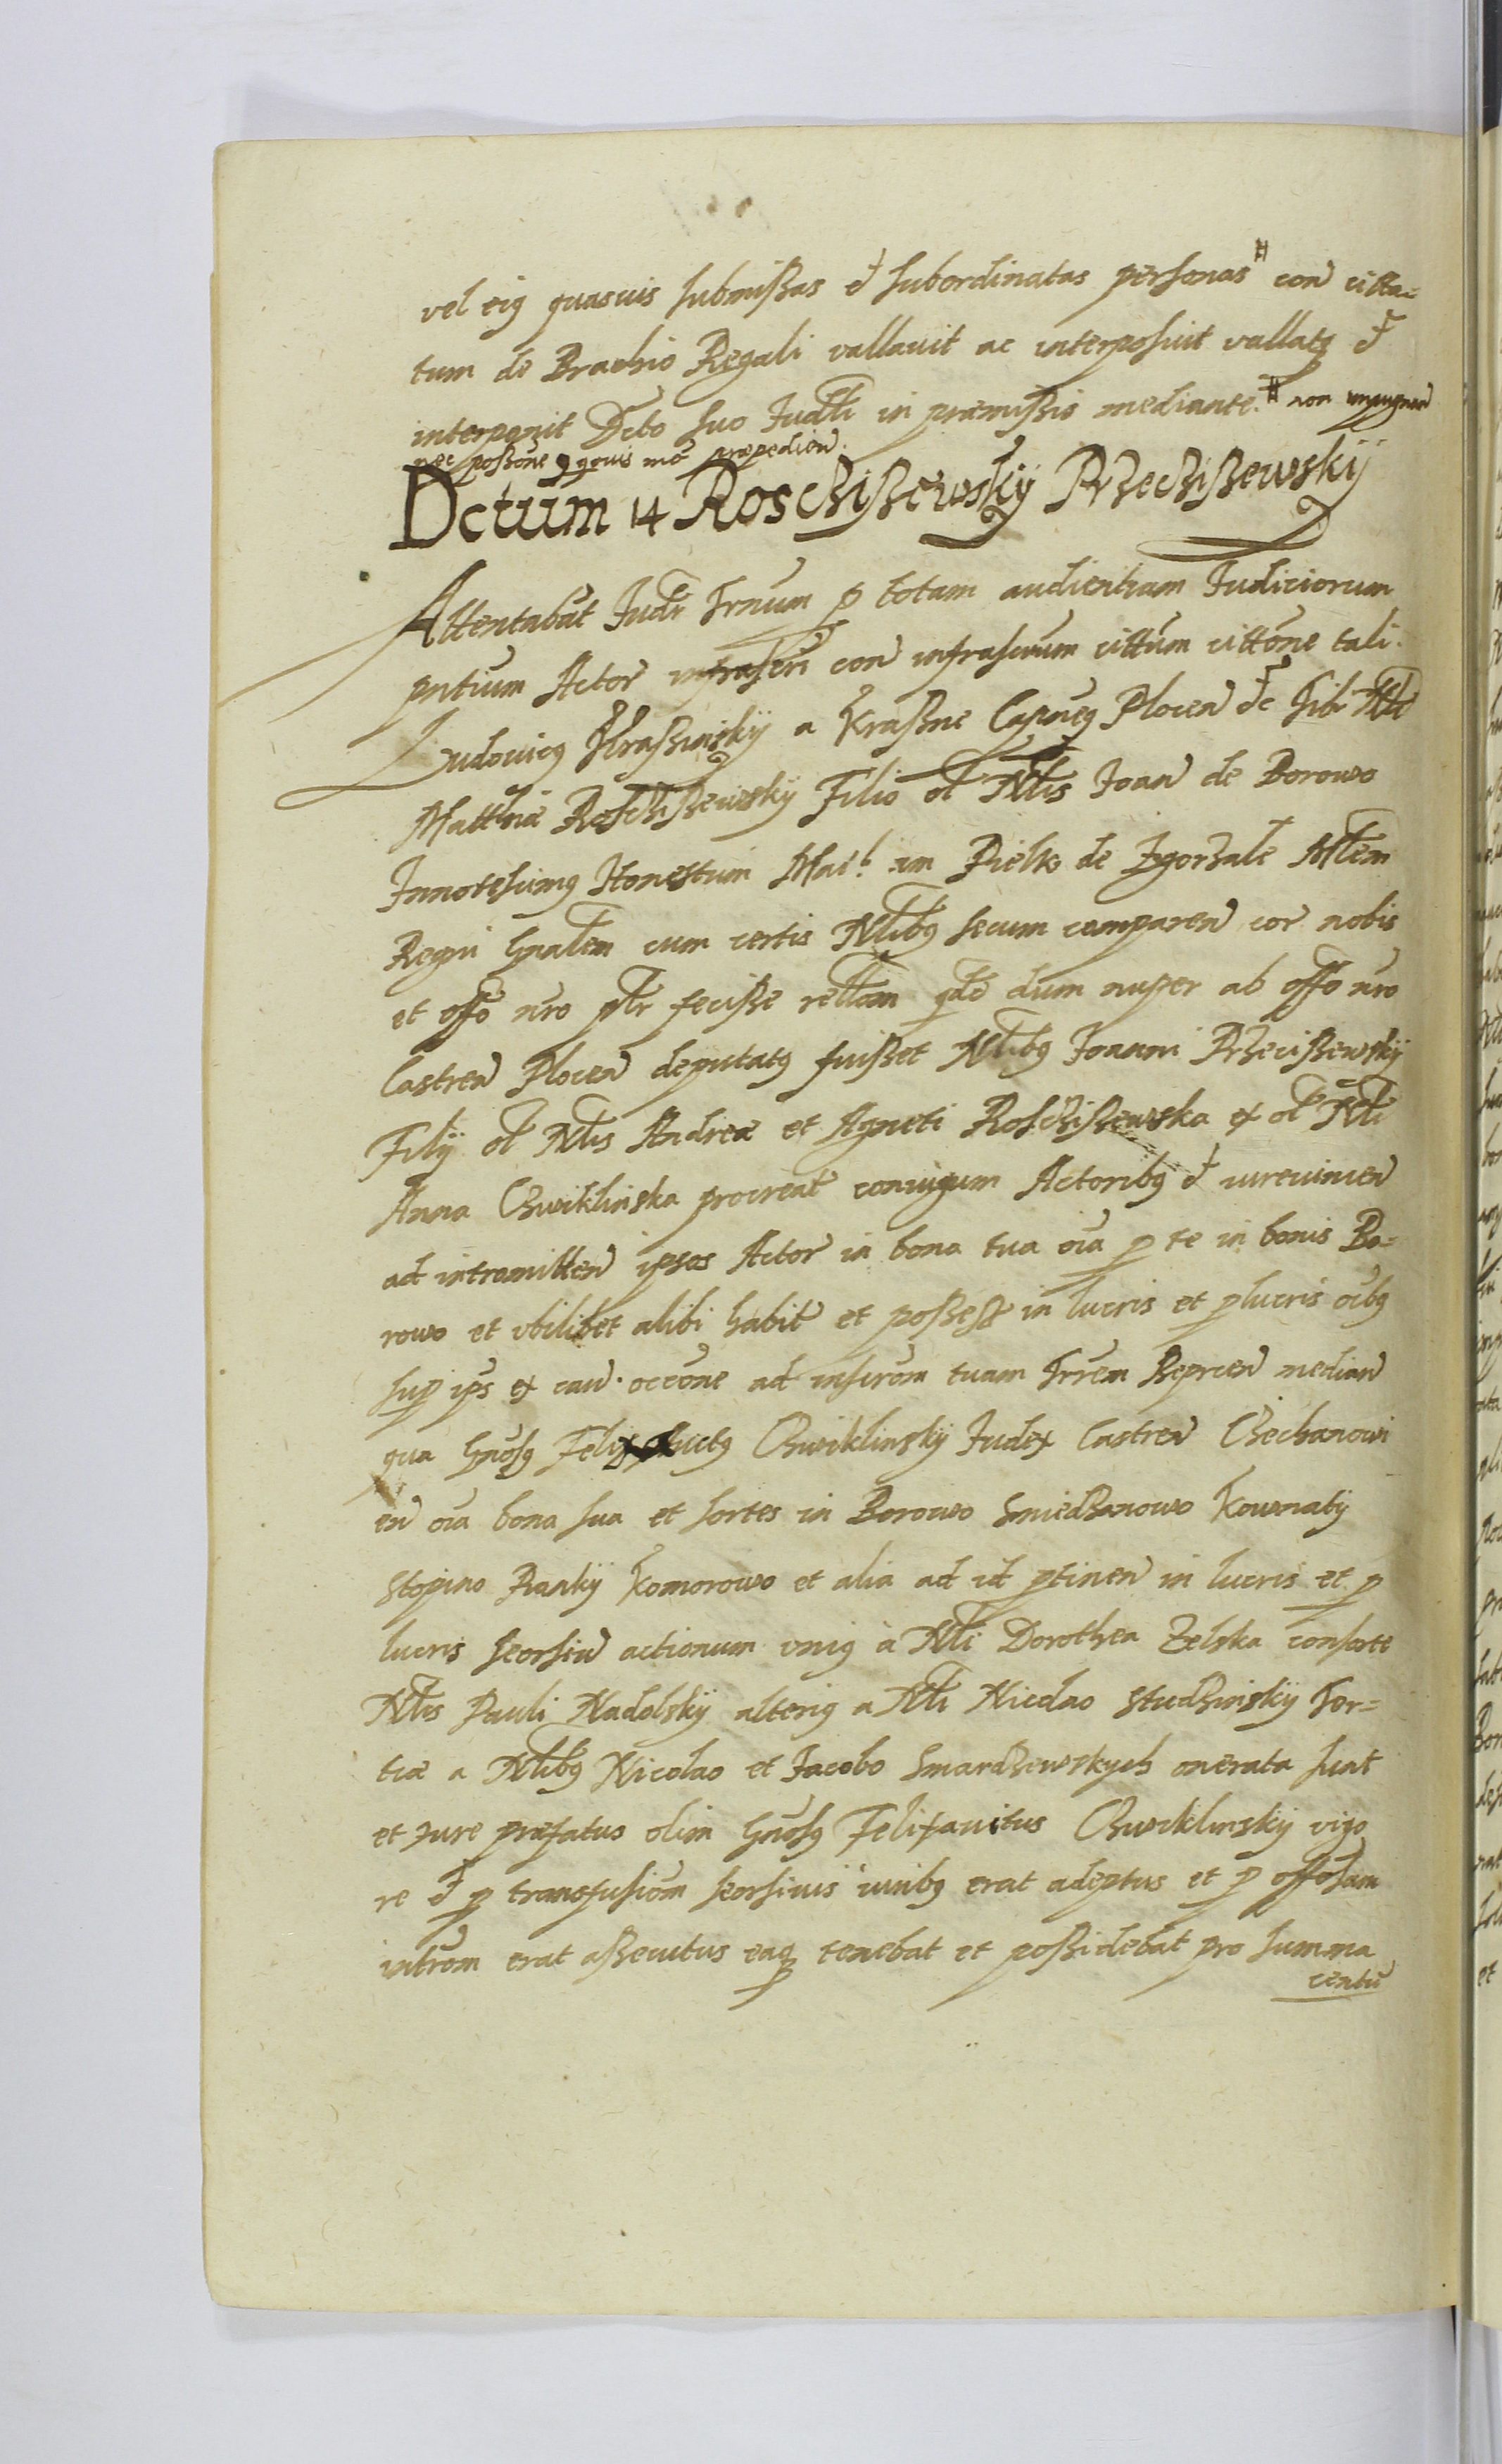 vel eig quasuis submissas et subordinatas personas # con citta=
tum de Brachio Regali vallauit ac interposuit vallatq et
interponit Dcto suo Judli in præmissis mediante. # non impugnen
nec possone quouis mo præpedien.
Dctum 14 Roschißewskÿ Przechißewskÿ
Attentabat Judr Trnum p totam audientiam Judiciorum
pntium Actor infrascri con infrascrum cittum cittone tali.
Ludouicq Krassinskÿ a Krassne Capneq Plocen etc Tibi Nbli
Matthiæ Roschißewskÿ Filio ol Nblis Joan de Borowo
Innotesimq Honestum Mat: im Pielk de Zgorzale Mlem
Regni Gnalem cum certis Nblibq secum comparen cor nobis
et offo nro pblr fecisse rellom qde dum nuper ab offo nro
Castren Plocen deputatq fuisset Nblibq Joanni Przecißewskÿ
Filÿ ol Nblis Andreæ et Agneti Roschißewska ex ol Nbli
Anna Chwiklinska procreat coniugum Actoribq et iurevincen
ad intromitten ipsos Actor in bona tua oia p te in bonis Bo=
rowo et vbilibet alibi habit et possess in lucris et plucris oibq
sup ips ex cau. occone ad inscrom tuam Trrem Sieprcen median
qua Gnosq Felix Chwiklinskÿ Judex Castren Ciechanowi
en oia bona sua et sortes in Borowo Gniedzanowo Kownatÿ
Stopino Rankÿ Komorowo et alia ad id ptinen in lucris et p
lucris seorsiu actionum vniq à Nbli Dorothea Zelska consorte
Nblis Pauli Nadolskÿ alteriq a Nbli Nicolao Studzinskÿ Ter=
tiæ a Nblibq Nicolao et Jacobo Smardzewskych onerata sunt
et jure præfatus olim Gnosq Felixauitus Chwiklinskÿ vigo
re et p transfusiom seorsiuis iuribq erat adeptus et p offosam
introm erat assecutus eaq tenebat et possidebat pro summa
centu